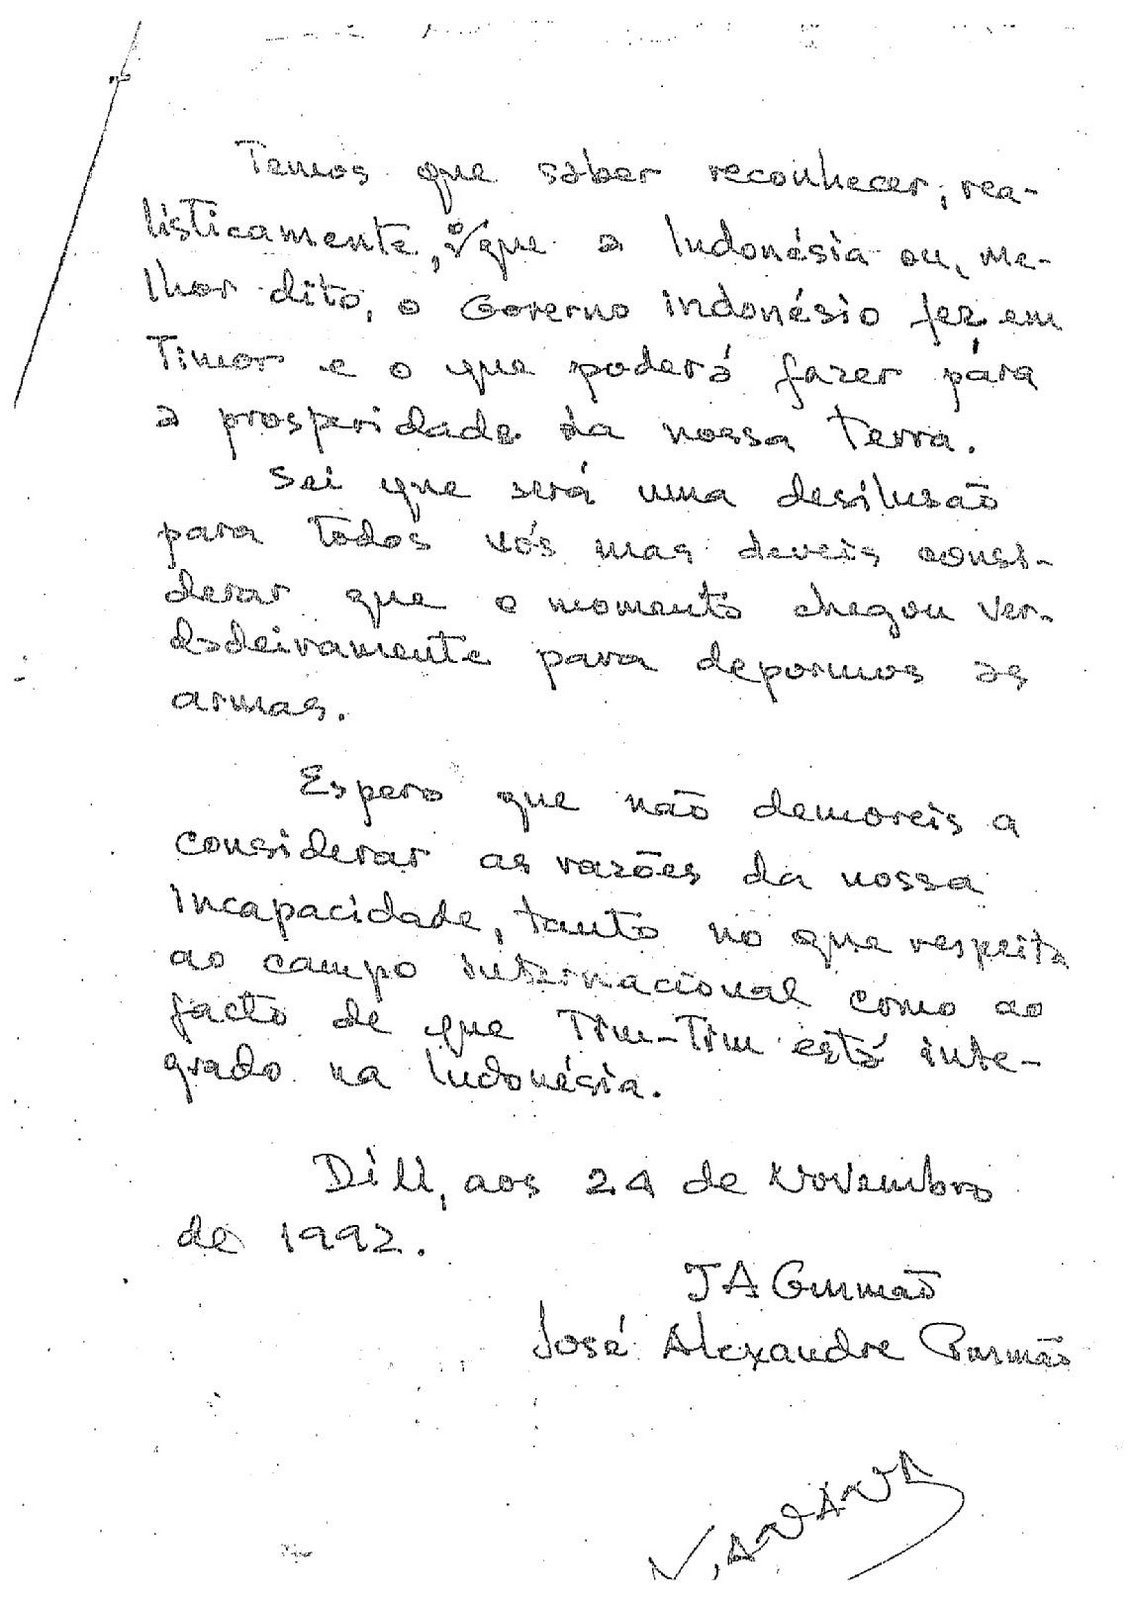 Temos que saber reconhecer, rea-
listicamente, o que a Indonésia ou, me-
lhor dito, o Governo indonésio fez em
Timor e o que poderá fazer pára
a prosperidade da nossa terra.
Sei que será uma desilusão
para todos vós mas deveis consi-
derar que o momento chegou ver-
dadeiramente para depormos as
armas.
Espero que não demoreis a
considerar as razões da nossa
incapacidade, tanto no que respeita
ao campo internacional como ao
facto de que Tim-Tim está inte-
grado na Indonésia.
Dili, aos 24 de Novembro
de 1992.
JA Gusmão
José Alexandre Gusmão